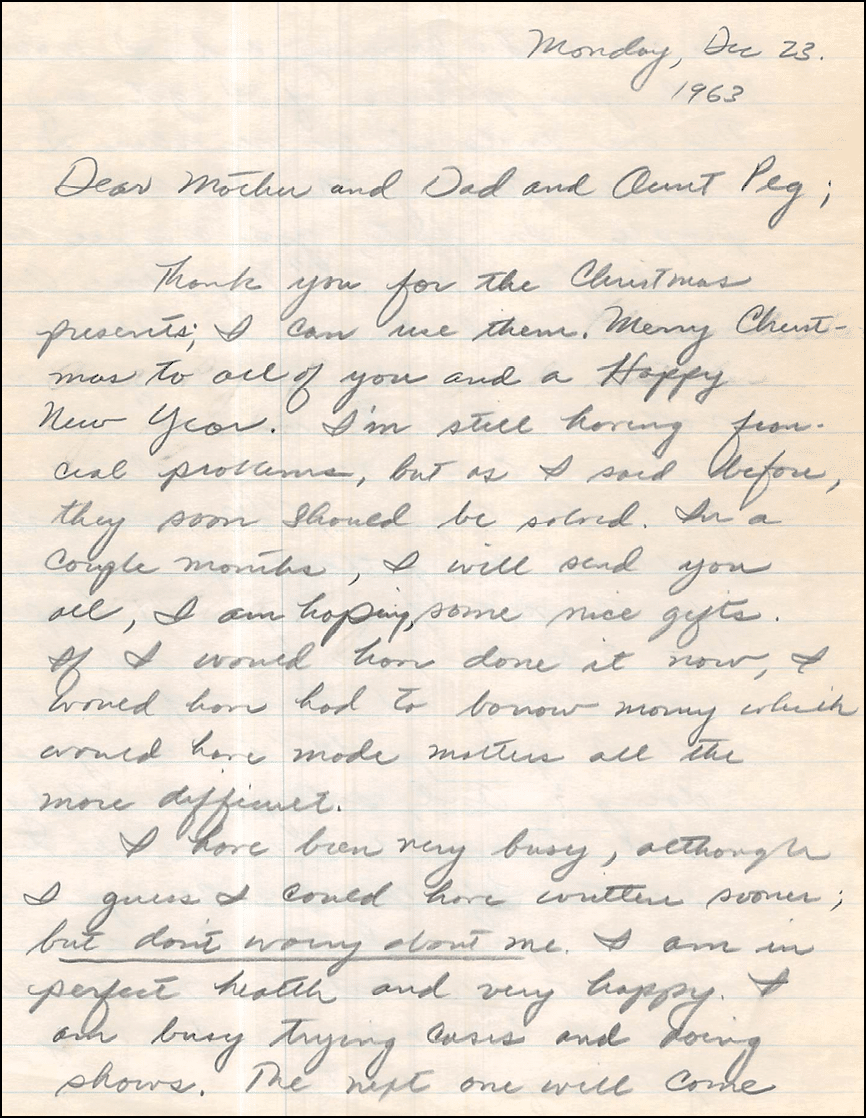 Monday, Dec 23.
1963
Dear Mother and Dad and Aunt Peg;
Thank you for the Christmas
presents; I can use them. Merry Christ-
mas to all of you and a Happy
New Year. I'm still having finan-
cial problems, but as I said before,
they soon should be solved. In a
couple months, I will send you
all, I am hoping, some nice gifts.
If I would have done it now, I
would have had to borrow money which
would have made matters all the
more difficult.
I have been very busy, although
I guess I could have written sooner;
but don't worry about me. I am in
perfect health and very happy. I
am busy trying cases and doing
shows. The next one will come